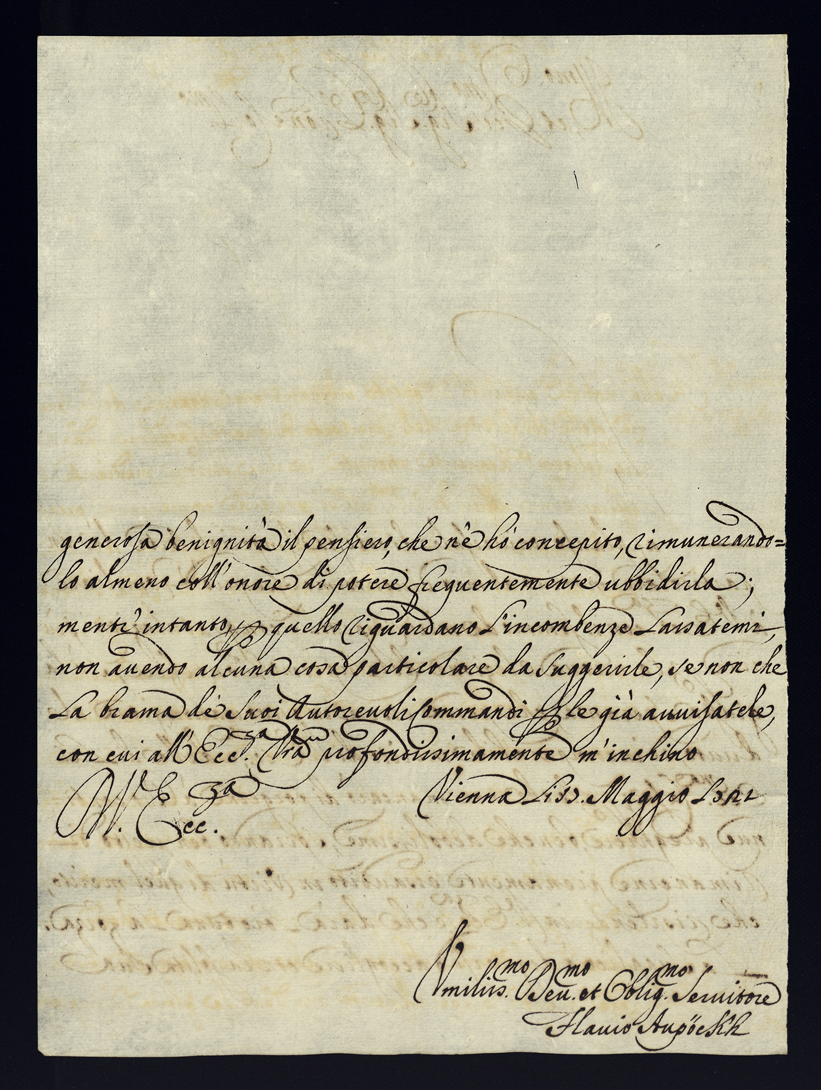 generosa benignità il pensiero, che n'è hò concepito, rimunerando=
lo almeno coll'onore di potere frequentemente ubbidirla;
mentr'intanto quello riguardano l'incombenze lassatemi,
non avendo alcuna cosa particolare da suggerirle, se non che
la brama dè suoi autorevoli Commandi le già avvisatele,
con cui all'Ecc.za Vra profondissimamente m'inchino
V. Ecc.za Vienna li Maggio
Umiliss.mo Deu.mo et Oblig.mo Servitore
Flavio Aupöckh